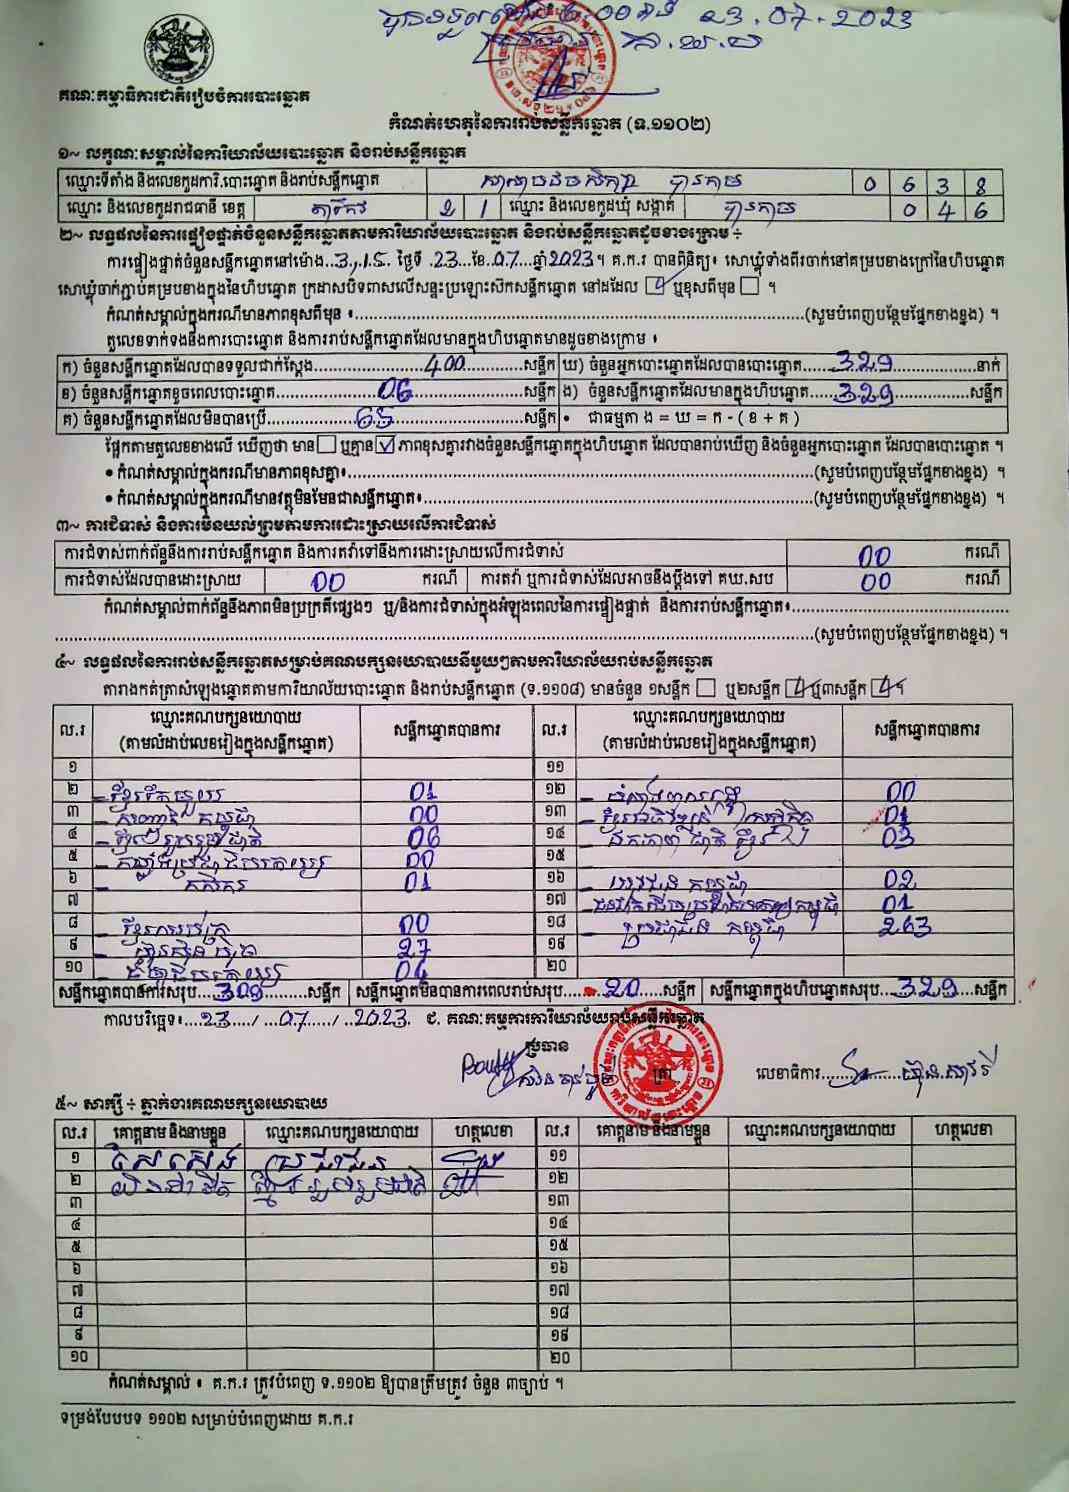 23.07.2023
គណៈកម្មាធិការជាតិរៀបចំការបោះឆ្នោត
កំណត់ហេតុនៃការរាប់សន្លឹកឆ្នោត (ទ.១១០២)
១~ លក្ខណៈសម្គាល់នៃការិយាល័យបោះឆ្នោត និងរាប់សន្លឹកឆ្នោត
ឈ្មោះទីតាំង និងលេខកូដការិ.បោះឆ្នោត និងរាប់សន្លឹកឆ្នោត 0 6 3 8
ឈ្មោះ និងលេខកូដរាជធានី ខេត្ត តាកែវ 2 1 ឈ្មោះ និងលេខកូដឃុំ សង្កាត់ 0 4 6
២~ លទ្ធផលនៃការផ្ទៀងផ្ទាត់ចំនួនសន្លឹកឆ្នោតតាមការិយាល័យបោះឆ្នោត និងរាប់សន្លឹកឆ្នោតដូចខាងក្រោម ÷
ការផ្ទៀងផ្ទាត់ចំនួនសន្លឹកឆ្នោតនៅម៉ោង..3,15. ថ្ងៃទី .23...ខែ.07...ឆ្នាំ2023។ គ.ក.រ បានពិនិត្យ៖ សោឃ្លុំទាំងពីរចាក់នៅគម្របខាងក្រៅនៃហិបឆ្នោត
សោឃ្លុំចាក់ភ្ជាប់គម្របខាងក្នុងនៃហិបឆ្នោត ក្រដាសបិទពាសលើសន្ទះប្រឡោះស៊កសន្លឹកឆ្នោត នៅដដែល ☑ ឬខុសពីមុន ☐ ។
កំណត់សម្គាល់ក្នុងករណីមានភាពខុសពីមុន ៖..........(សូមបំពេញបន្ថែមផ្នែកខាងខ្នង) ។
តួលេខទាក់ទងនឹងការបោះឆ្នោត និងការរាប់សន្លឹកឆ្នោតដែលមានក្នុងហិបឆ្នោតមានដូចខាងក្រោម ៖
ក) ចំនួនសន្លឹកឆ្នោតដែលបានទទួលជាក់ស្តែង..........400..........សន្លឹក ឃ) ចំនួនអ្នកបោះឆ្នោតដែលបានបោះឆ្នោត.....329..........នាក់
ខ) ចំនួនសន្លឹកឆ្នោតខូចពេលបោះឆ្នោត..........06..........សន្លឹក ង) ចំនួនសន្លឹកឆ្នោតដែលមានក្នុងហិបឆ្នោត.....329..........សន្លឹក
គ) ចំនួនសន្លឹកឆ្នោតដែលមិនបានប្រើ..........65..........សន្លឹក • ជាធម្មតា ង = ឃ = ក - ( ខ + គ )
ផ្អែកតាមតួលេខខាងលើ ឃើញថា មាន ☐ ឬគ្មាន ☑ ភាពខុសគ្នារវាងចំនួនសន្លឹកឆ្នោតក្នុងហិបឆ្នោត ដែលបានរាប់ឃើញ និងចំនួនអ្នកបោះឆ្នោត ដែលបានបោះឆ្នោត ។
• កំណត់សម្គាល់ក្នុងករណីមានភាពខុសគ្នា៖..........(សូមបំពេញបន្ថែមផ្នែកខាងខ្នង) ។
• កំណត់សម្គាល់ក្នុងករណីមានវត្ថុមិនមែនជាសន្លឹកឆ្នោត៖..........(សូមបំពេញបន្ថែមផ្នែកខាងខ្នង) ។
៣~ ការជំទាស់ និងការមិនយល់ព្រមតាមការដោះស្រាយលើការជំទាស់
ការជំទាស់ពាក់ព័ន្ធនឹងការរាប់សន្លឹកឆ្នោត និងការតវ៉ាទៅនឹងការដោះស្រាយលើការជំទាស់ 00 ករណី
ការជំទាស់ដែលបានដោះស្រាយ 00 ករណី ការតវ៉ា ឬការជំទាស់ដែលអាចនឹងប្តឹងទៅ គឃ.សប 00 ករណី
កំណត់សម្គាល់ពាក់ព័ន្ធនឹងភាពមិនប្រក្រតីផ្សេងៗ ឬ/និងការជំទាស់ក្នុងអំឡុងពេលនៃការផ្ទៀងផ្ទាត់ និងការរាប់សន្លឹកឆ្នោត៖..........
..........(សូមបំពេញបន្ថែមផ្នែកខាងខ្នង) ។
៤~ លទ្ធផលនៃការរាប់សន្លឹកឆ្នោតសម្រាប់គណបក្សនយោបាយនីមួយៗតាមការិយាល័យរាប់សន្លឹកឆ្នោត
តារាងកត់ត្រាសំឡេងឆ្នោតតាមការិយាល័យបោះឆ្នោត និងរាប់សន្លឹកឆ្នោត (ទ.១១០៨) មានចំនួន ១សន្លឹក ☐ ឬ២សន្លឹក ឬ៣សន្លឹក ។
ល.រ ឈ្មោះគណបក្សនយោបាយ (តាមលំដាប់លេខរៀងក្នុងសន្លឹកឆ្នោត) សន្លឹកឆ្នោតបានការ ល.រ ឈ្មោះគណបក្សនយោបាយ (តាមលំដាប់លេខរៀងក្នុងសន្លឹកឆ្នោត) សន្លឹកឆ្នោតបានការ
១ ១១
២ - ខ្មែរតែមួយ 01 ១២ 00
៣ 00 ១៣ 01
៤ 06 ១៤ - ឯកភាពជាតិខ្មែរ 03
៥ 00 ១៥
៦ - កសិករ 01 ១៦ - យុវជនកម្ពុជា 02
៧ ១៧ 01
៨ - ខ្មែរអភិរក្ស 00 ១៨ - ប្រជាជនកម្ពុជា 263
៩ - ហ្វ៊ុនស៊ិនប៉ិច 27 ១៩
១០ ២០
សន្លឹកឆ្នោតបានការសរុប...309.....សន្លឹក សន្លឹកឆ្នោតមិនបានការពេលរាប់សរុប.....20.....សន្លឹក សន្លឹកឆ្នោតក្នុងហិបឆ្នោតសរុប...329....សន្លឹក
កាលបរិច្ឆេទ៖...23..../...07...../...2023. ៩. គណៈកម្មការការិយាល័យរាប់សន្លឹកឆ្នោត
ប្រធាន
ត្រា
លេខាធិការ
៥~ សាក្សី ÷ ភ្នាក់ងារគណបក្សនយោបាយ
ល.រ គោត្តនាម និងនាមខ្លួន ឈ្មោះគណបក្សនយោបាយ ហត្ថលេខា ល.រ គោត្តនាម និងនាមខ្លួន ឈ្មោះគណបក្សនយោបាយ ហត្ថលេខា
១ ប្រជាជន ១១
២ ១២
៣ ១៣
៤ ១៤
៥ ១៥
៦ ១៦
៧ ១៧
៨ ១៨
៩ ១៩
១០ ២០
កំណត់សម្គាល់ ៖ គ.ក.រ ត្រូវបំពេញ ទ.១១០២ ឱ្យបានត្រឹមត្រូវ ចំនួន ៣ច្បាប់ ។
ទម្រង់បែបបទ ១១០២ សម្រាប់បំពេញដោយ គ.ក.រ